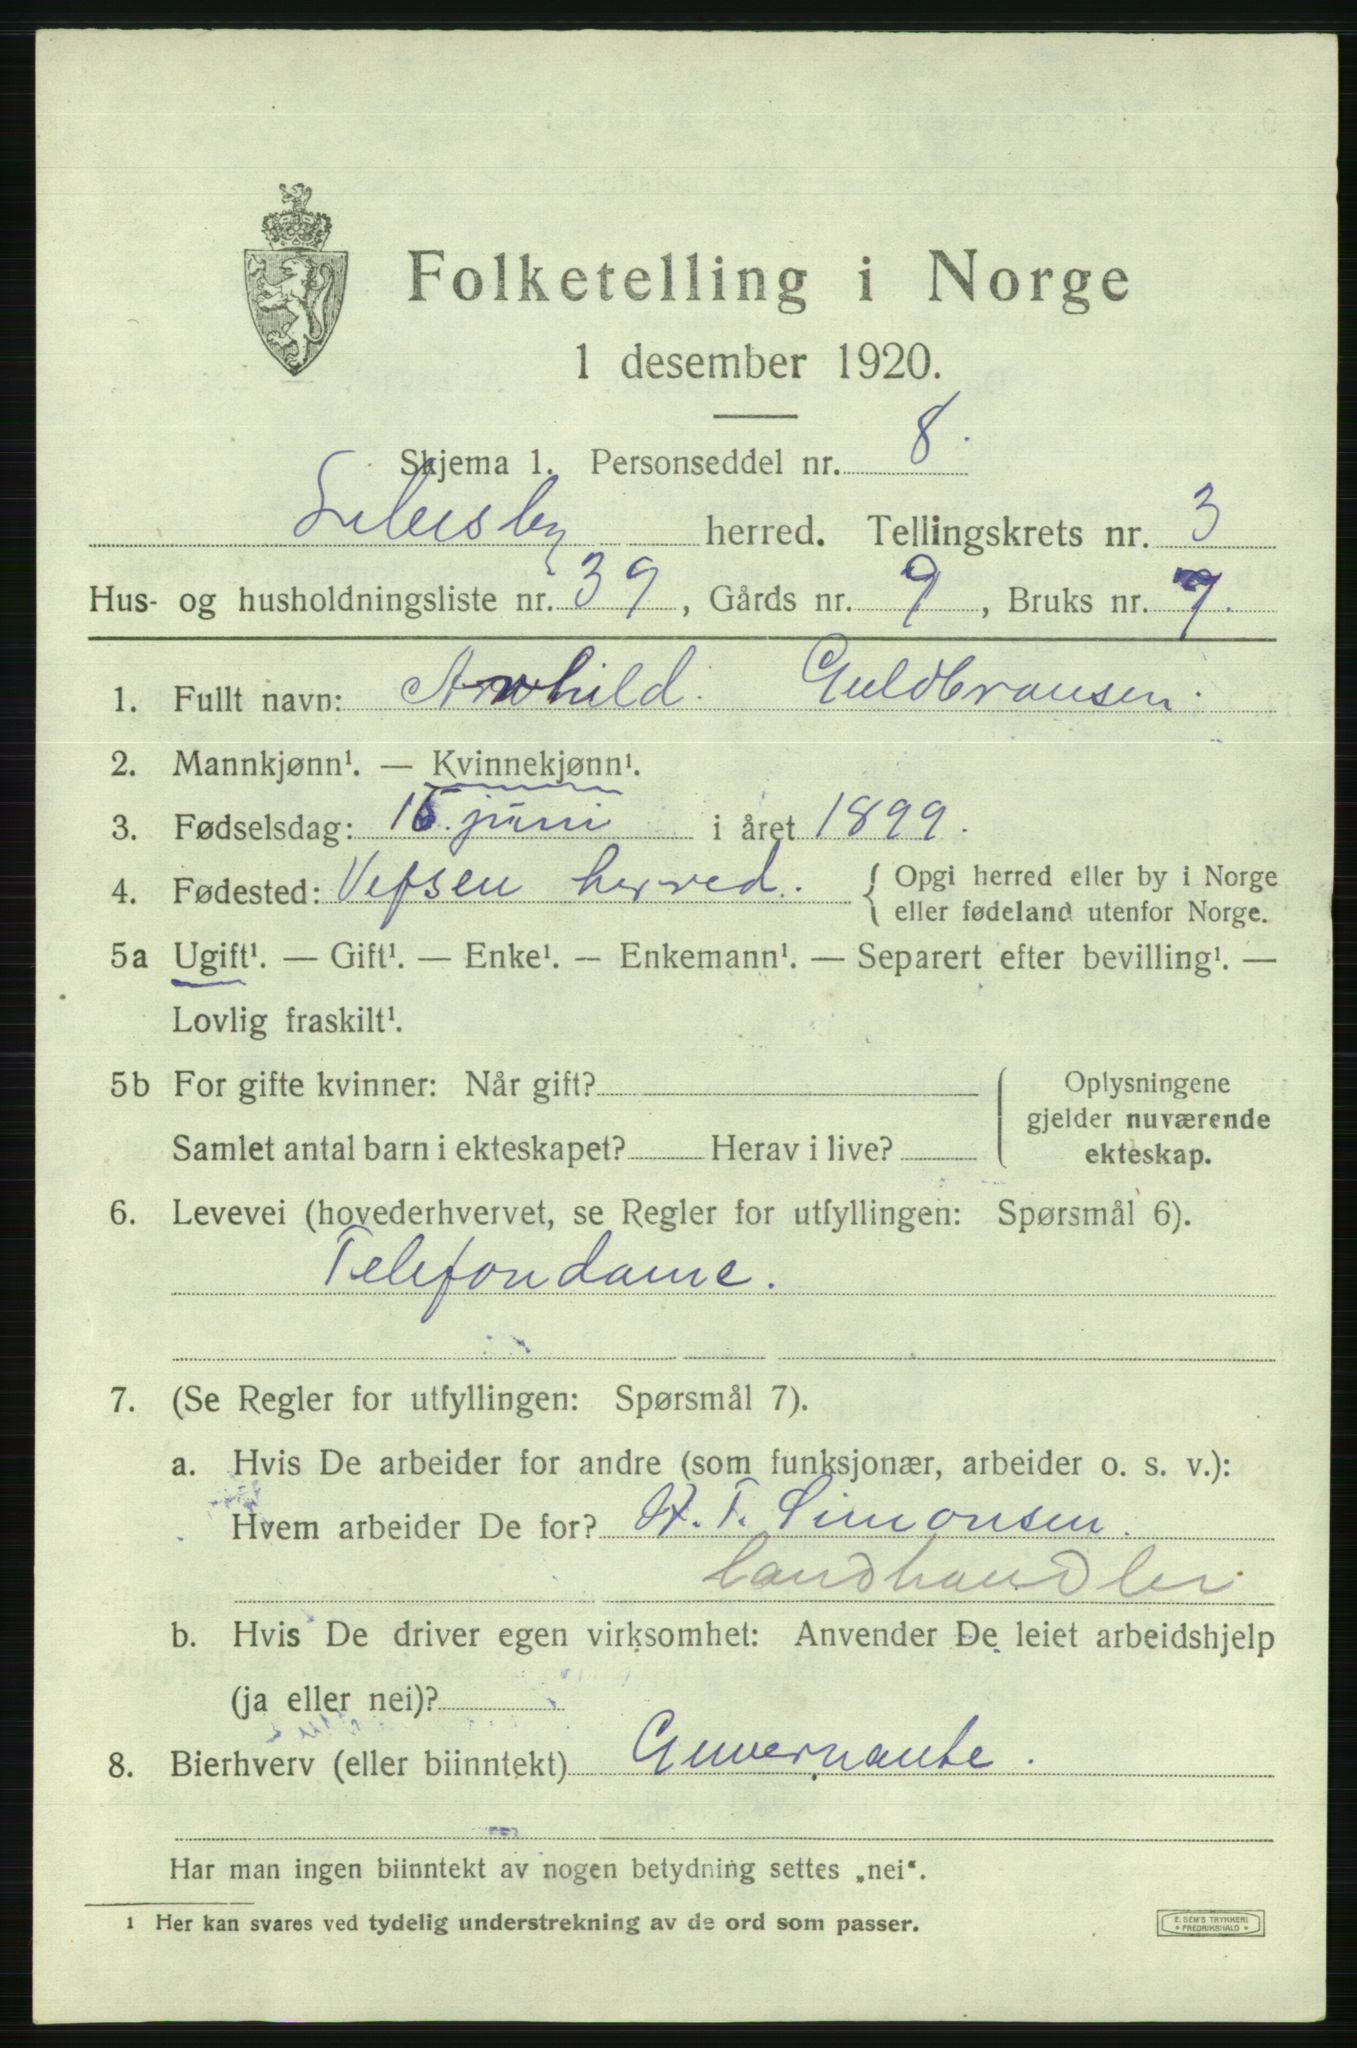 Folketelling i Norge
1 desember 1920.
Skjema 1. Personseddel nr. 8.
herred. Tellingskrets nr. 3
Hus- og husholdningsliste nr. 39, Gårds nr. 9, Bruks nr. 7.
1. Fullt navn: Guldbransen.
2. Mannkjønn¹. — Kvinnekjønn¹.
3. Fødselsdag: juni i året 1899.
4. Fødested: Vefsen herred. { Opgi herred eller by i Norge
eller fødeland utenfor Norge.
5a Ugift¹. — Gift¹. — Enke¹. — Enkemann¹. — Separert efter bevilling¹. —
Lovlig fraskilt¹.
5b For gifte kvinner: Når gift? Oplysningene
gjelder nuværende
Samlet antal barn i ekteskapet? Herav i live? ekteskap.
6. Levevei (hovederhvervet, se Regler for utfyllingen: Spørsmål 6).
Telefondame.
7. (Se Regler for utfyllingen: Spørsmål 7).
a. Hvis De arbeider for andre (som funksjonær, arbeider o. s. v.):
Hvem arbeider De for? H. T. Simonsen.
Landhandler
b. Hvis De driver egen virksomhet: Anvender De leiet arbeidshjelp
(ja eller nei)?
8. Bierhverv (eller biinntekt) Guvernante.
Har man ingen biinntekt av nogen betydning settes „nei“.
1 Her kan svares ved tydelig understrekning av de ord som passer.
E. SEM'S TRYKKERI
FREDRIKSHALD